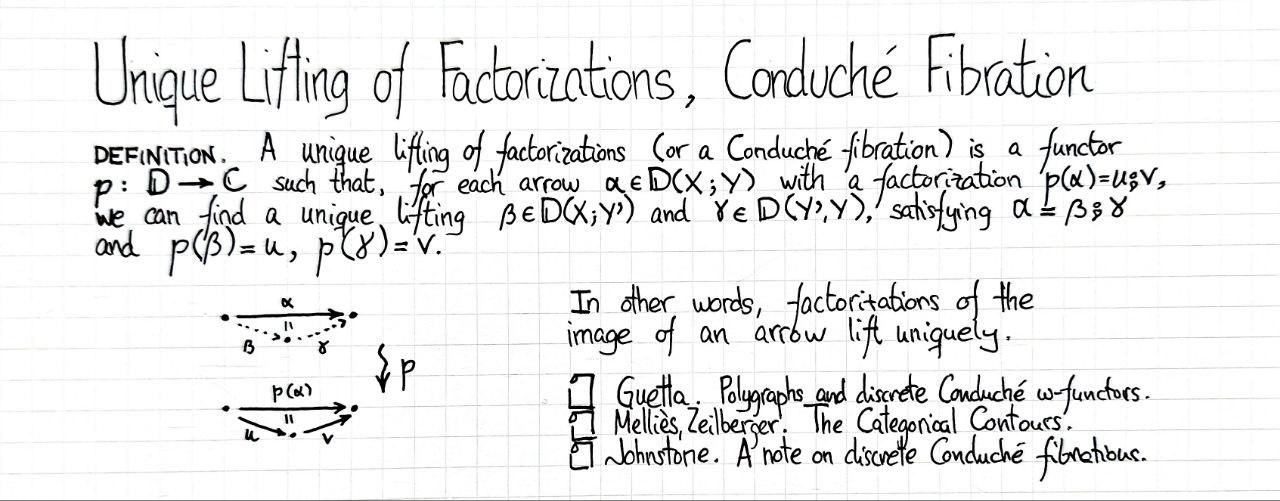 Unique Lifting of Factorizations, Conduché Fibration
DEFINITION. A unique lifting of factorizations (or a Conduché fibration) is a functor
p: 𝔻 → ℂ such that, for each arrow α ∈ 𝔻(X;Y) with a factorization p(α)=u⨾v,
we can find a unique lifting β ∈ 𝔻(X;Y') and γ ∈ 𝔻(Y',Y), satisfying α = β⨾γ
and p(β)=u, p(γ)=v.
α
=
β γ
p
p(α)
=
u v
In other words, factorizations of the
image of an arrow lift uniquely.
Guetta. Polygraphs and discrete Conduché ω-functors.
Melliès, Zeilberger. The Categorical Contours.
Johnstone. A note on discrete Conduché fibrations.